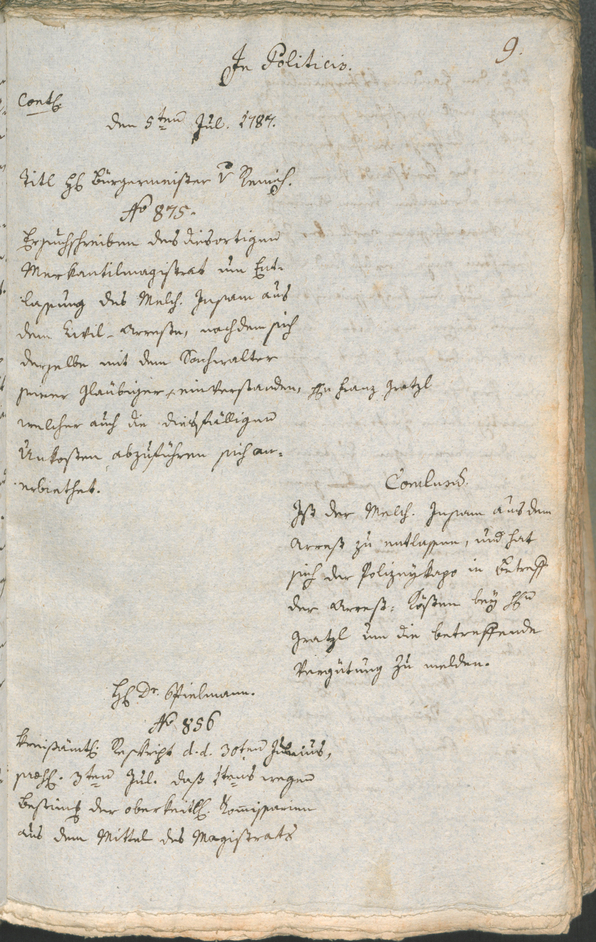 In Politicis.
9.
Contł
den 5ten Jul. 1787.
Titl H Bürgermeister v Remich.
No 875.
Ersuchschreiben des diesortigen
Merkantilmagistrat um Ent-
lassung des Melch. Insam aus
dem Civil-Arreste, nachdem sich
derselbe mit dem Sachwalter
seiner Gläubiger einverstanden, Hn Franz Gratzl
welcher auch die diesfälligen
Unkosten abzuführen sich an-
erbiethet.
Conclusū.
Ist der Melch. Insam aus dem
Arrest zu entlassen, und hat
sich der Polizeykapo in Betreff
der Arrest-Kösten bey Hn
Gratzl um die betreffende
Vergütung zu melden.
H Dr. Spielmann.
No 856
Kreisämtl Reskript d.d. 30ten Junius,
præs. 3ten Jul. daß 1tens wegen
Bestimg der oberkeitl. Kommissarien
aus dem Mittel des Magistrats